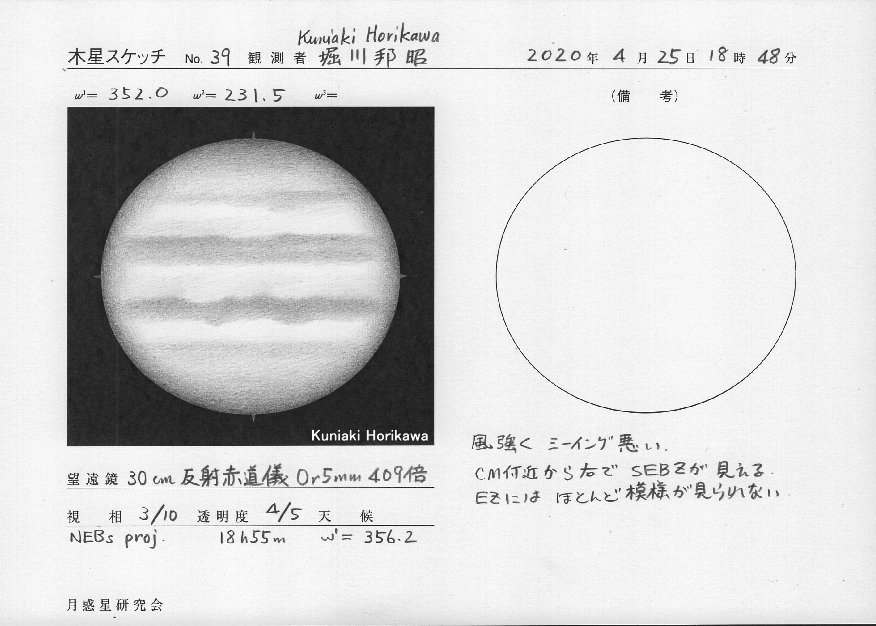 Kuniaki Horikawa
木星スケッチ No. 39 観測者 堀川邦昭 2020年 4月 25日 18時 48分
ω¹= 352.0 ω²= 231.5 ω³=
(備 考)
Kuniaki Horikawa
風強く シーイング悪い.
CM付近から右で SEBZが見える.
EZには ほとんど模様が見られない.
望遠鏡 30cm 反射赤道儀 Or5mm 409倍
視 相 3/10 透明度 4/5 天 候
NEBs proj. 18h55m ω¹= 356.2
月惑星研究会